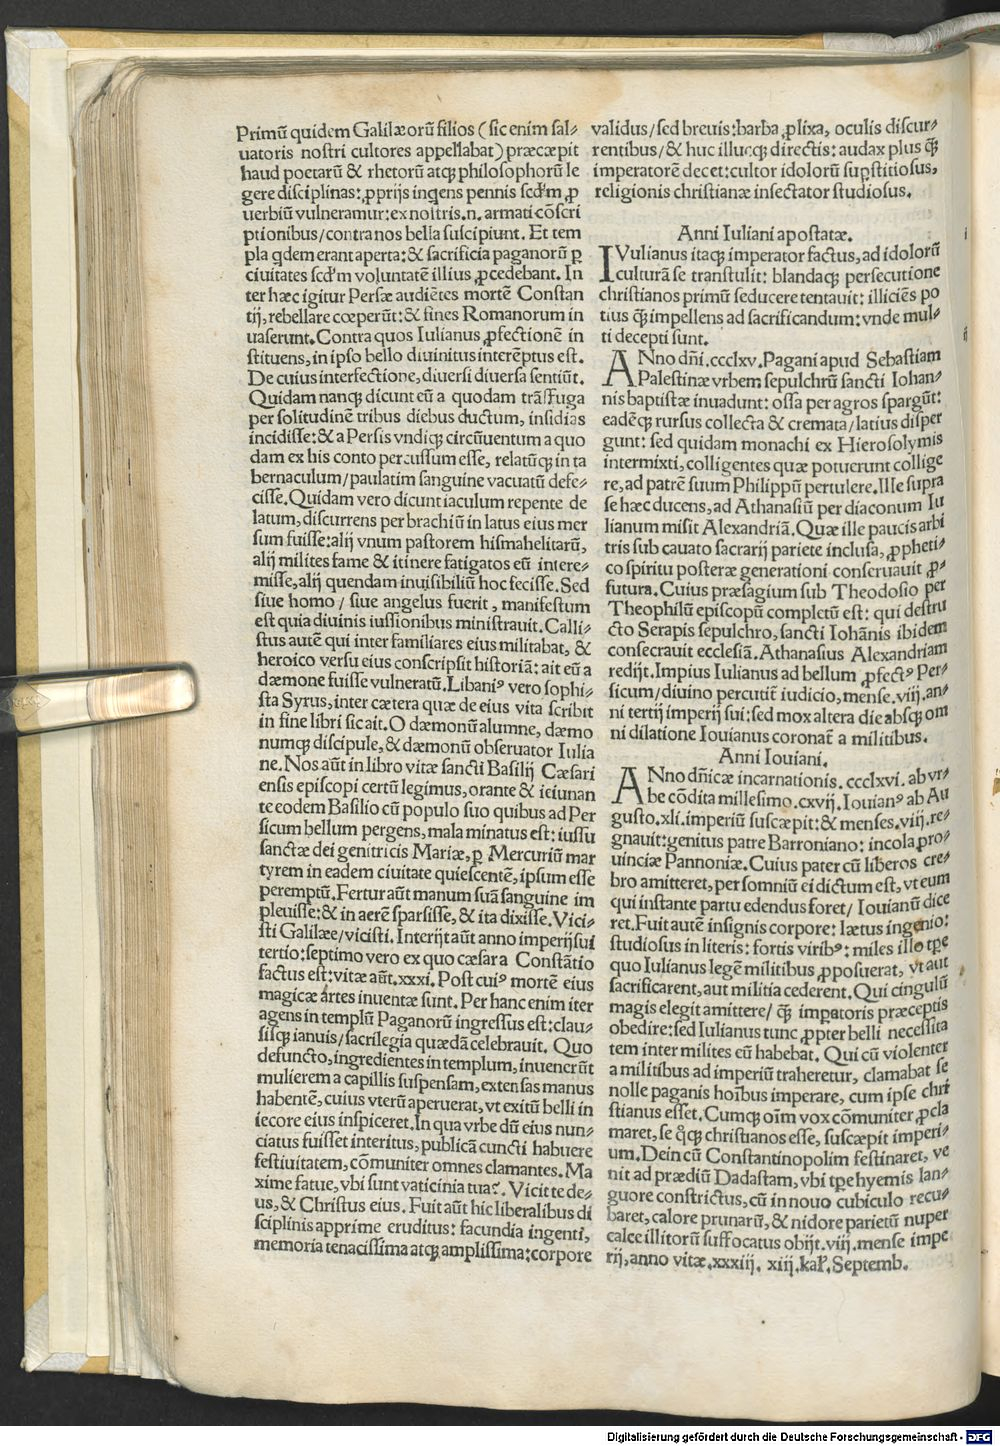 Primũ quidem Galilæorũ filios (sic enim sal⸗
uatoris nostri cultores appellabat) præcæpit
haud poetarũ & rhetorũ atqꝫ philosophorũ le
gere disciplinas: ꝓprijs inqͥens pennis scđm ꝓ
uerbiũ vulneramur: ex nostris.n. armati cõscri
ptionibus/contra nos bella suscipiunt. Et tem
pla qͥdem erant aperta: & sacrificia paganorũ ꝑ
ciuitates scđm voluntatẽ illius ꝓcedebant. In
ter hæc igitur Persæ audiẽtes mortẽ Constan
tij, rebellare cœperũt: & fines Romanorum in
uaserunt. Contra quos Iulianus ꝓfectionẽ in
stituens, in ipso bello diuinitus interẽptus est.
De cuius interfectione, diuersi diuersa sentiũt.
Quidam nanqꝫ dicunt eũ a quodam trãsfuga
per solitudinẽ tribus diebus ductum, insidias
incidisse: & a Persis vndiqꝫ circũuentum a quo
dam ex his conto percussum esse, relatũqꝫ in ta
bernaculum/paulatim sanguine vacuatũ defe⸗
cisse. Quidam vero dicunt iaculum repente de
latum, discurrens per brachiũ in latus eius mer
sum fuisse: alij vnum pastorem hismahelitarũ,
alij milites fame & itinere fatigatos eũ intere⸗
misse, alij quendam inuisibiliũ hoc fecisse. Sed
siue homo / siue angelus fuerit, manifestum
est quia diuinis iussionibus ministrauit. Calli⸗
stus autẽ qui inter familiares eius militabat, &
heroico versu eius conscripsit historiã: ait eũ a
dæmone fuisse vulneratũ. Libaniꝰ vero sophi⸗
sta Syrus, inter cætera quæ de eius vita scribit
in fine libri sic ait. O dæmonũ alumne, dæmo
numqꝫ discipule, & dæmonũ obseruator Iulia
ne. Nos aũt in libro vitæ sancti Basilij Cæsari
ensis episcopi certũ legimus, orante & ieiunan
te eodem Basilio cũ populo suo quibus ad Per
sicum bellum pergens, mala minatus est: iussu
sanctæ dei genitricis Mariæ, ꝑ Mercuriũ mar
tyrem in eadem ciuitate quiescentẽ, ipsum esse
peremptũ. Fertur aũt manum suã sanguine im
pleuisse: & in aerẽ sparsisse, & ita dixisse. Vici⸗
sti Galilæe/vicisti. Interijt aũt anno imperij sui
tertio: septimo vero ex quo cæsar a Constãtio
factus est: vitæ aũt.xxxi. Post cuiꝰ mortẽ eius
magicæ artes inuentæ sunt. Per hanc enim iter
agens in templũ Paganorũ ingressus est: clau⸗
sisqꝫ ianuis/sacrilegia quædã celebrauit. Quo
defuncto, ingredientes in templum, inuenerũt
mulierem a capillis suspensam, extensas manus
habentẽ, cuius vterũ aperuerat, vt exitũ belli in
iecore eius inspiceret. In qua vrbe dũ eius nun⸗
ciatus fuisset interitus, publicã cuncti habuere
festiuitatem, cõmuniter omnes clamantes. Ma
xime fatue, vbi sunt vaticinia tua? Vicit te de⸗
us, & Christus eius. Fuit aũt hic liberalibus di
sciplinis apprime eruditus: facundia ingenti,
memoria tenacissima atqꝫ amplissima: corpore
validus/sed breuis: barba ꝓlixa, oculis discur⸗
rentibus/& huc illucqꝫ directis: audax plus q̃ꝫ
imperatorẽ decet: cultor idolorũ supstitiosus,
religionis christianæ insectator studiosus.
Anni Iuliani apostatæ.
IVulianus itaqꝫ imperator factus, ad idolorũ
culturã se transtulit: blandaqꝫ persecutione
christianos primũ seducere tentauit: illiciẽs po
tius q̃ꝫ impellens ad sacrificandum: vnde mul⸗
ti decepti sunt.
ANno dñi.ccclxv. Pagani apud Sebastiam
Palestinæ vrbem sepulchrũ sancti Iohan⸗
nis baptistæ inuadunt: ossa per agros spargũt:
eadẽqꝫ rursus collecta & cremata/latius disper
gunt: sed quidam monachi ex Hierosolymis
intermixti, colligentes quæ potuerunt collige
re, ad patrẽ suum Philippũ pertulere. Ille supra
se hæc ducens, ad Athanasiũ per diaconum Iu
lianum misit Alexandriã. Quæ ille paucis arbi
tris sub cauato sacrarij pariete inclusa, ꝓpheti⸗
co spiritu posteræ generationi conseruauit ꝓ⸗
futura. Cuius præsagium sub Theodosio per
Theophilũ episcopũ completũ est: qui destru
cto Serapis sepulchro, sancti Iohãnis ibidem
consecrauit ecclesiã. Athanasius Alexandriam
redijt. Impius Iulianus ad bellum ꝓfectꝰ Per⸗
sicum/diuino percutit̃ iudicio, mense.viij. an⸗
ni tertij imperij sui: sed mox altera die absqꝫ om
ni dilatione Iouianus coronat̃ a militibus.
Anni Iouiani.
ANno dñicæ incarnationis.ccclxvi. ab vr⸗
be cõdita millesimo.cxvij. Iouianꝰ ab Au
gusto.xli. imperiũ suscæpit: & menses.viij. re⸗
gnauit: genitus patre Barroniano: incola pro⸗
uinciæ Pannoniæ. Cuius pater cũ liberos cre⸗
bro amitteret, per somniũ ei dictum est, vt eum
qui instante partu edendus foret/ Iouianũ dice
ret. Fuit autẽ insignis corpore: lætus ingenio:
studiosus in literis: fortis viribꝰ: miles illo tp̃e
quo Iulianus legẽ militibus ꝓposuerat, vt aut
sacrificarent, aut militia cederent. Qui cingulũ
magis elegit amittere/ q̃ꝫ impatoris præceptis
obedire: sed Iulianus tunc ꝓpter belli necessita
tem inter milites eũ habebat. Qui cũ violenter
a militibus ad imperiũ traheretur, clamabat se
nolle paganis hoĩbus imperare, cum ipse chri
stianus esset. Cumqꝫ oĩm vox cõmuniter ꝓcla
maret, se qͦqꝫ christianos esse, suscæpit imperi⸗
um. Dein cũ Constantinopolim festinaret, ve
nit ad prædiũ Dadastam, vbi tp̃e hyemis lan⸗
guore constrictus, cũ in nouo cubiculo recu⸗
baret, calore prunarũ, & nidore parietũ nuper
calce illitorũ suffocatus obijt.viij. mense impe
rij, anno vitæ.xxxiij. xiij. kal̃. Septemb.
Digitalisierung gefördert durch die Deutsche Forschungsgemeinschaft - DFG